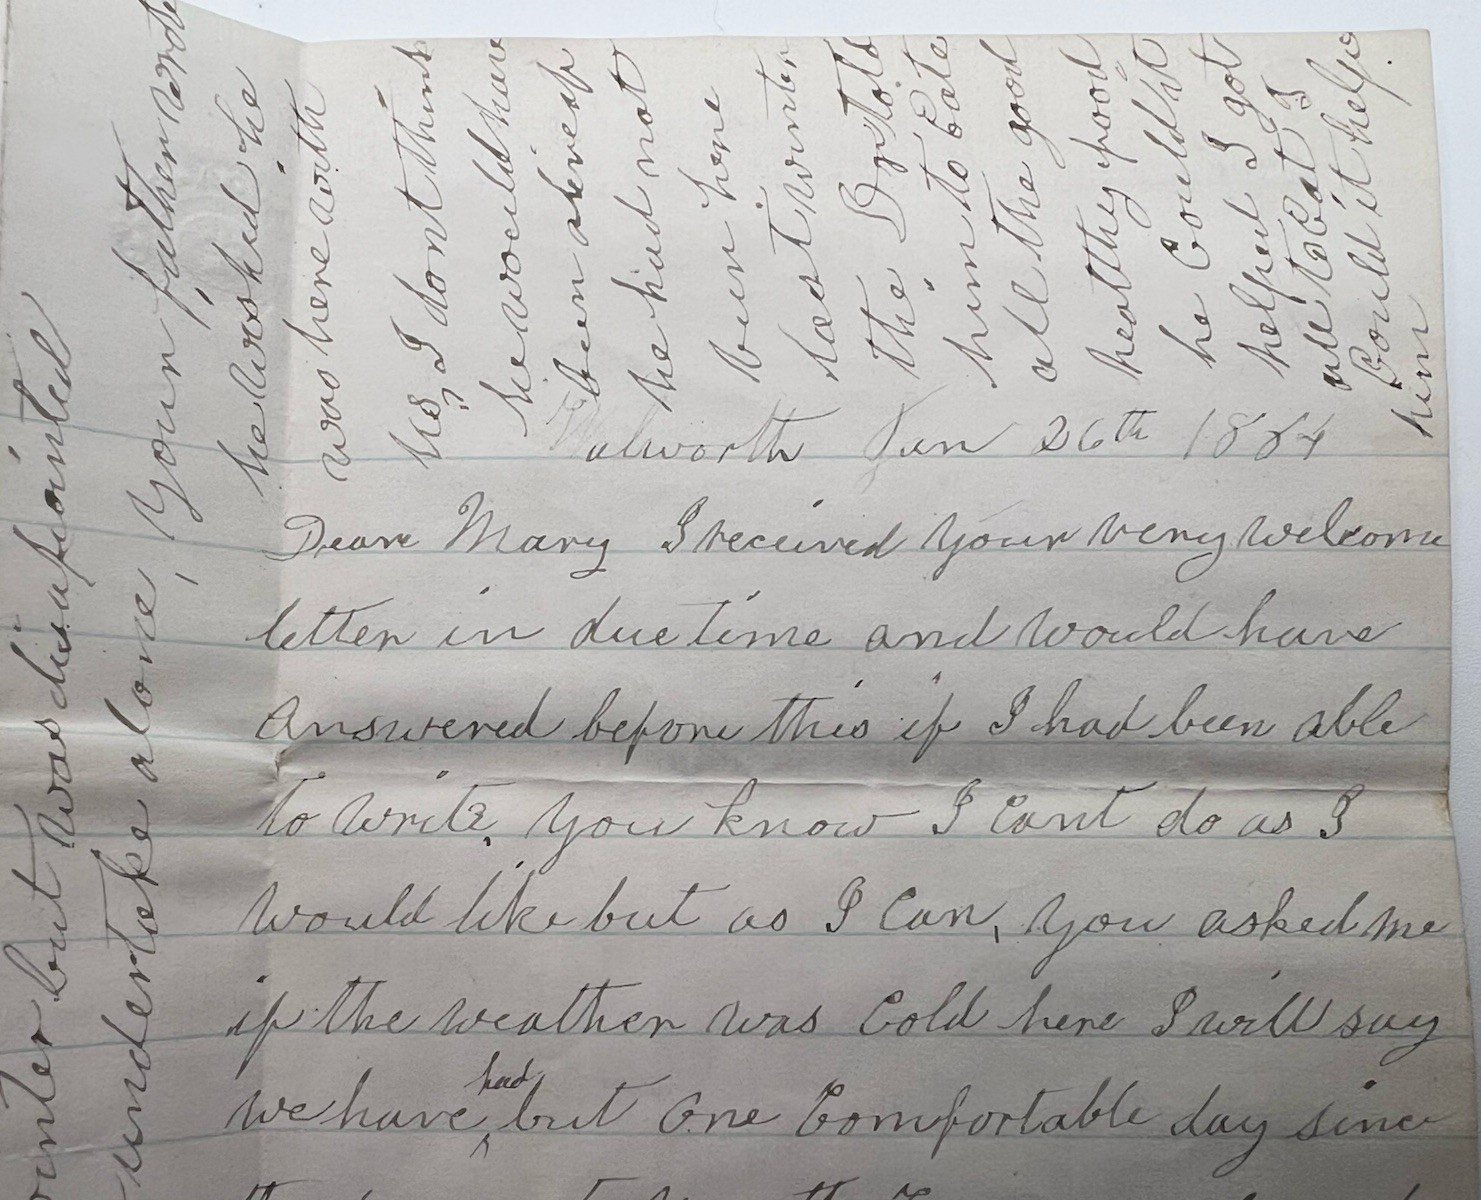 Walworth Jan 26th 1884
Dear Mary I received your very welcome
letter in due time and would have
answered before this if I had been able
to write, you know I Cant do as I
would like but as I Can, you asked me
if the weather was Cold here I will say
we have had but One Comfortable day since
inter but was disapointed
undertake alone, Your father wrote
he wished he
was here with
us, I dont think
he would have
been
he had not
been here
last winter
the Dr told
him to Eate
all the good
healthy food
he Could it
helped I got
all to Eat I
Could it help
him